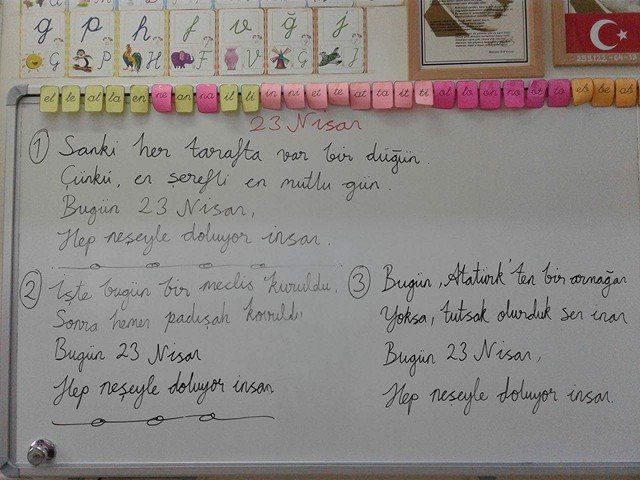 g p h f v ğ j
G P H F V Ğ J
el te al ta en ne an na il li in ni et te at ta it ti ol lo on no ot to eb be ab
23 Nisan
1 Sanki her tarafta var bir düğün.
Çünkü, en şerefli en mutlu gün.
Bugün 23 Nisan,
Hep neşeyle doluyor insan.
2 İşte bugün bir meclis kuruldu,
Sonra hemen padişah kovuldu
Bugün 23 Nisan
Hep neşeyle doluyor insan
3 Bugün, Atatürk'ten bir armağan
Yoksa, tutsak olurduk sen inan
Bugün 23 Nisan,
Hep neşeyle doluyor insan.